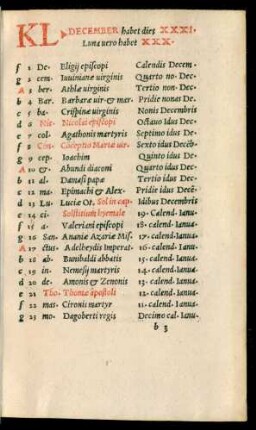 KL DECEMBER habet dies XXXI.
Luna uero habet XXX.
f 1 De- Eligij episcopi Calendis Decem-
g 2 cem- Iuuinianæ uirginis Quarto no- Dec-
A 3 ber- Athlæ uirginis Tertio non- Dec-
b 4 Bar. Barbaræ uir- & mar- Pridie nonas De-
c 5 ba- Crispinæ uirginis Nonis Decembris
d 6 Nic- Nicolai episcopi Octauo idus Dec-
e 7 col- Agathonis martyris Septimo idus De-
f 8 Con- Cōceptio Mariæ uir- Sexto idus Decēb-
g 9 cep- Ioachim Quinto idus De-
A 10 &- Abundi diaconi Quarto idus Dec-
b 11 al- Damasi papæ Tertio idus Dec-
c 12 ma- Epimachi & Alex- Pridie idus Decē-
d 13 Lu- Luciæ Ot. Sol in cap- Idibus Decembris
e 14 ci- Solstitium hyemale 19- calend- Ianu-
f 15 a- Valeriani episcopi 18- calend- Ianua-
g 16 San- Ananiæ Azariæ Mis. 17- calend- Ianua-
A 17 ctus- Adelheydis Imperat- 16- calend- Ianua-
b 18 ab- Bunibaldi abbatis 15- calend- Ianua-
c 19 in- Nemesij martyris 14- calend- Ianua-
d 20 de- Amonis & Zenonis 13- calend- Ianua-
e 21 Tho- Thomæ apostoli 12- calend- Ianua-
f 22 mas- Cironis martyr 11- calend- Ianua-
g 23 mo- Dagoberti regis Decimo cal- Ianu-
b 3